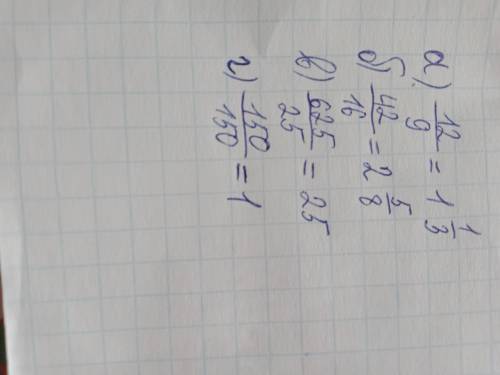 а) 12/9 = 1 1/3
б) 42/16 = 2 5/8
в) 625/25 = 25
г) 150/150 = 1